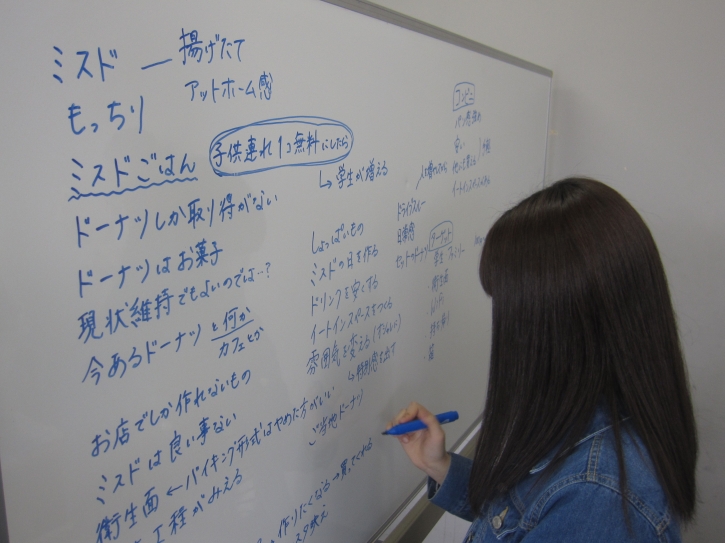 ミスド — 揚げたて
アットホーム感
もっちり
ミスドごはん 子供連れ1コ無料にしたら
↳ 学生が増える
ドーナツしか取り得がない
ドーナツはお菓子
現状維持でもよいのでは‥?
今あるドーナツと何か
カフェとか
お店でしか作れないもの
ミスドは良い事ない
衛生面 ← バイキング形式はやめた方がいい
工程がみえる
作りたくなる → 買ってくれる
しょっぱいもの
ミスドの日を作る
ドリンクを安くする
イートインスペースをつくる
雰囲気を変える
↳ 特別感を出す
ご当地ドーナツ
コンビニ
安い
ドライブスルー
ターゲット
学生 ファミリー
衛生面
WiFi